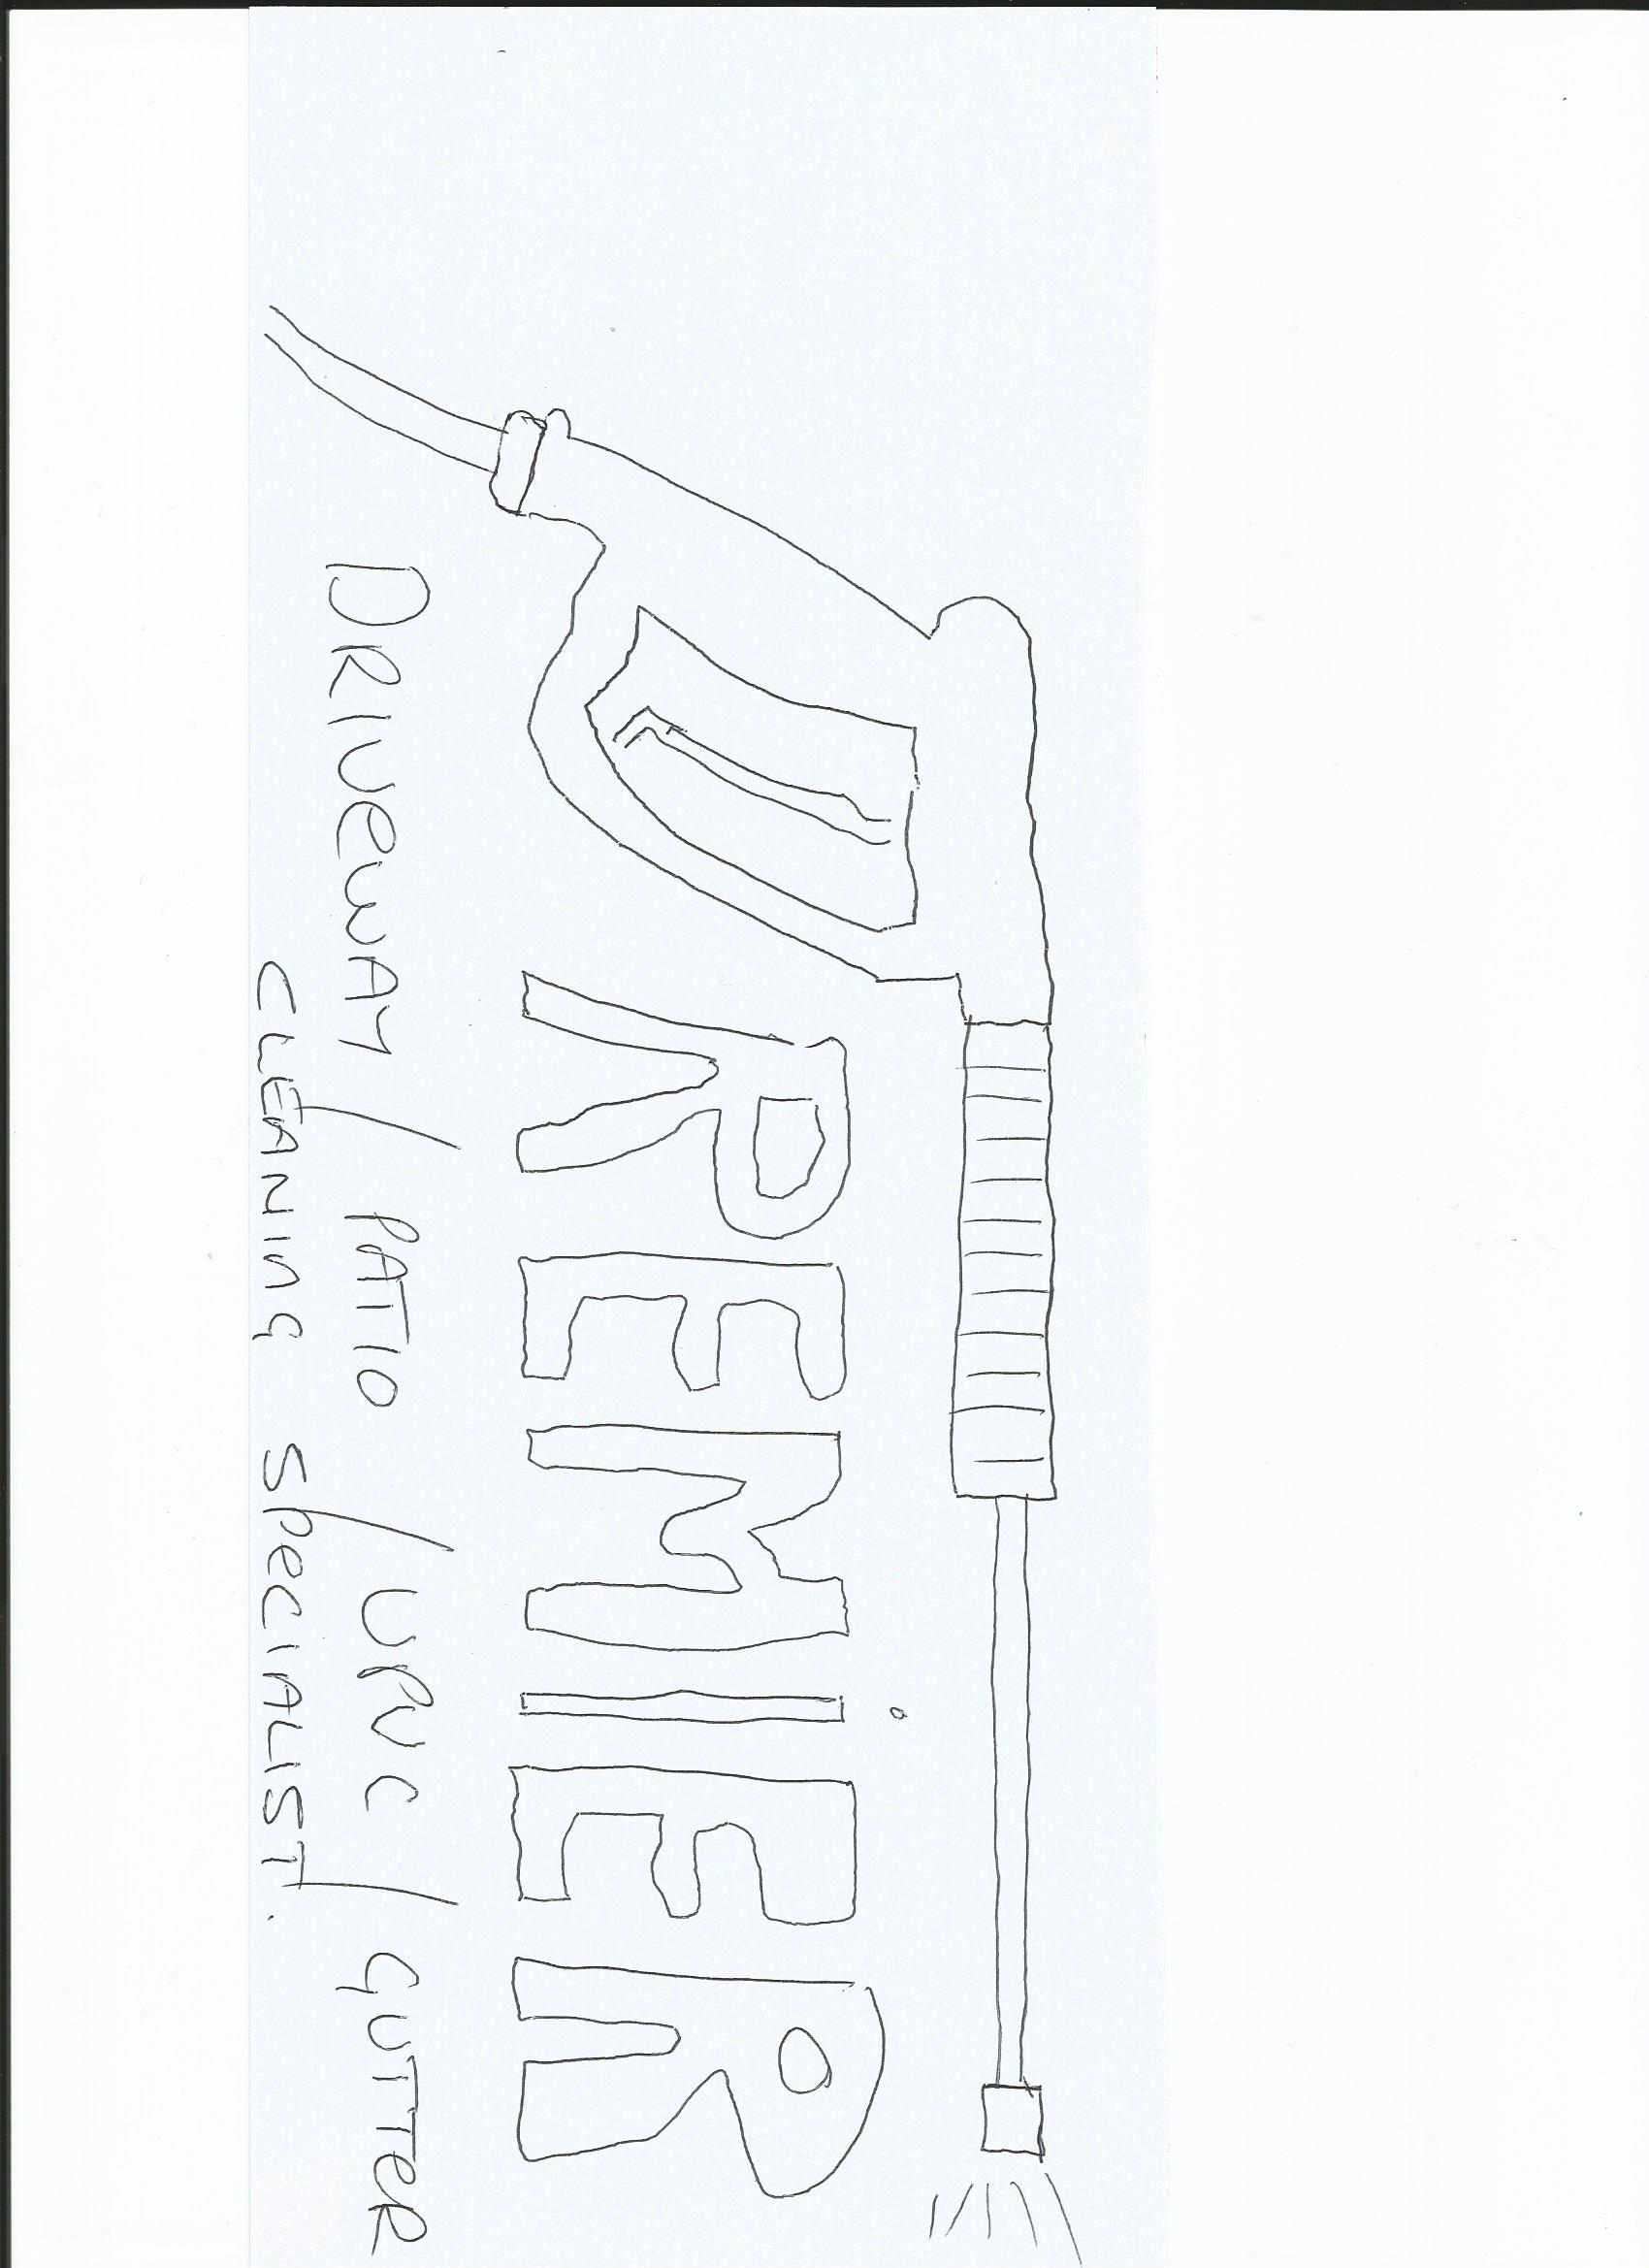 REMIER
DRIVEWAY / PATIO / UPVC / GUTTER
CLEANING SPECIALIST.